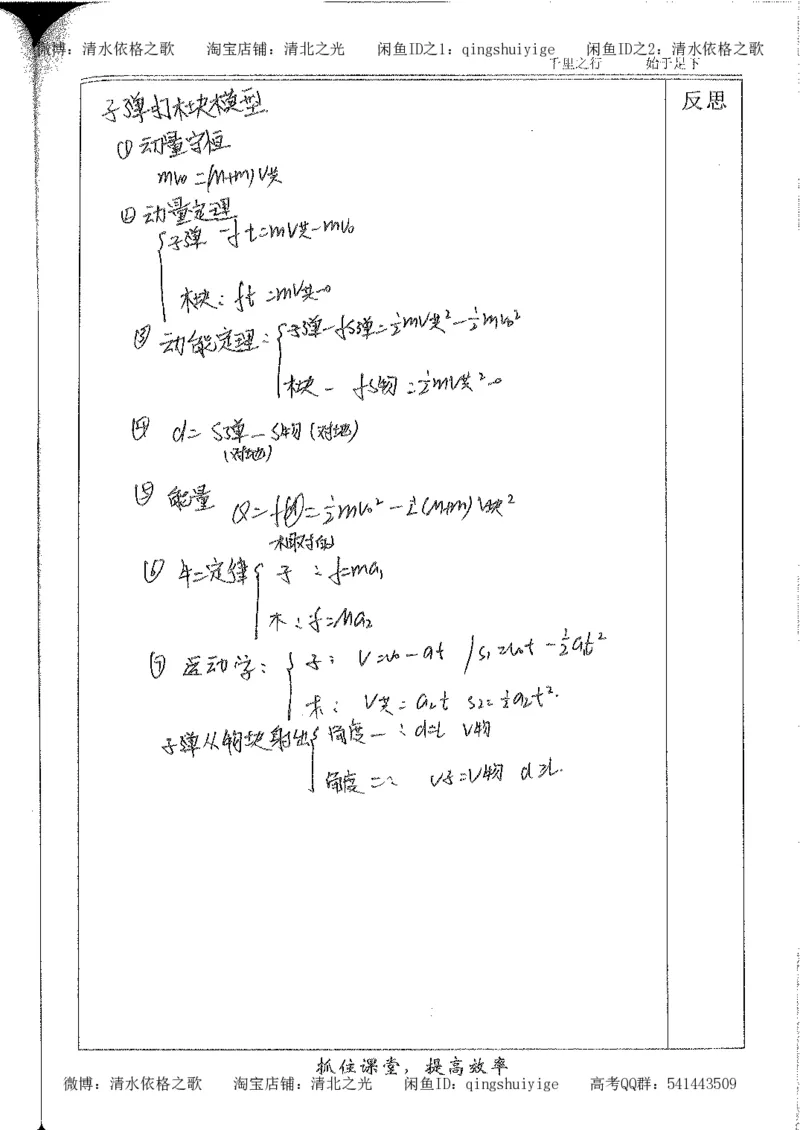 微博：清水依格之歌 淘宝店铺：清北之光 闲鱼ID之1：qingshuiyige 闲鱼ID之2：清水依格之歌
千里之行 始于足下
反思
子弹打木块模型
① 动量守恒
mv₀=(M+m)V共
② 动量定理
子弹 -ft=mV共-mv₀
木块：ft=mV共-0
③ 动能定理：子弹-fS弹=½mV共²-½mv₀²
木块- fS物=½mV共²-0
④ d=S弹-S物(对地)
(对地)
⑤ 能量 Q=fd=½mv₀²-½(M+m)V共²
相对的
⑥ 牛二定律 子：f=ma₁
木：f=Ma₂
⑦ 运动学：子：V=v₀-at / S₁=v₀t-½a₁t²
木：V共=a₂t S₂=½a₂t².
子弹从物块射出 角度一：d=L V物
角度二：V子=V物 d≥L.
抓住课堂，提高效率
微博：清水依格之歌 淘宝店铺：清北之光 闲鱼ID：qingshuiyige 高考QQ群：541443509